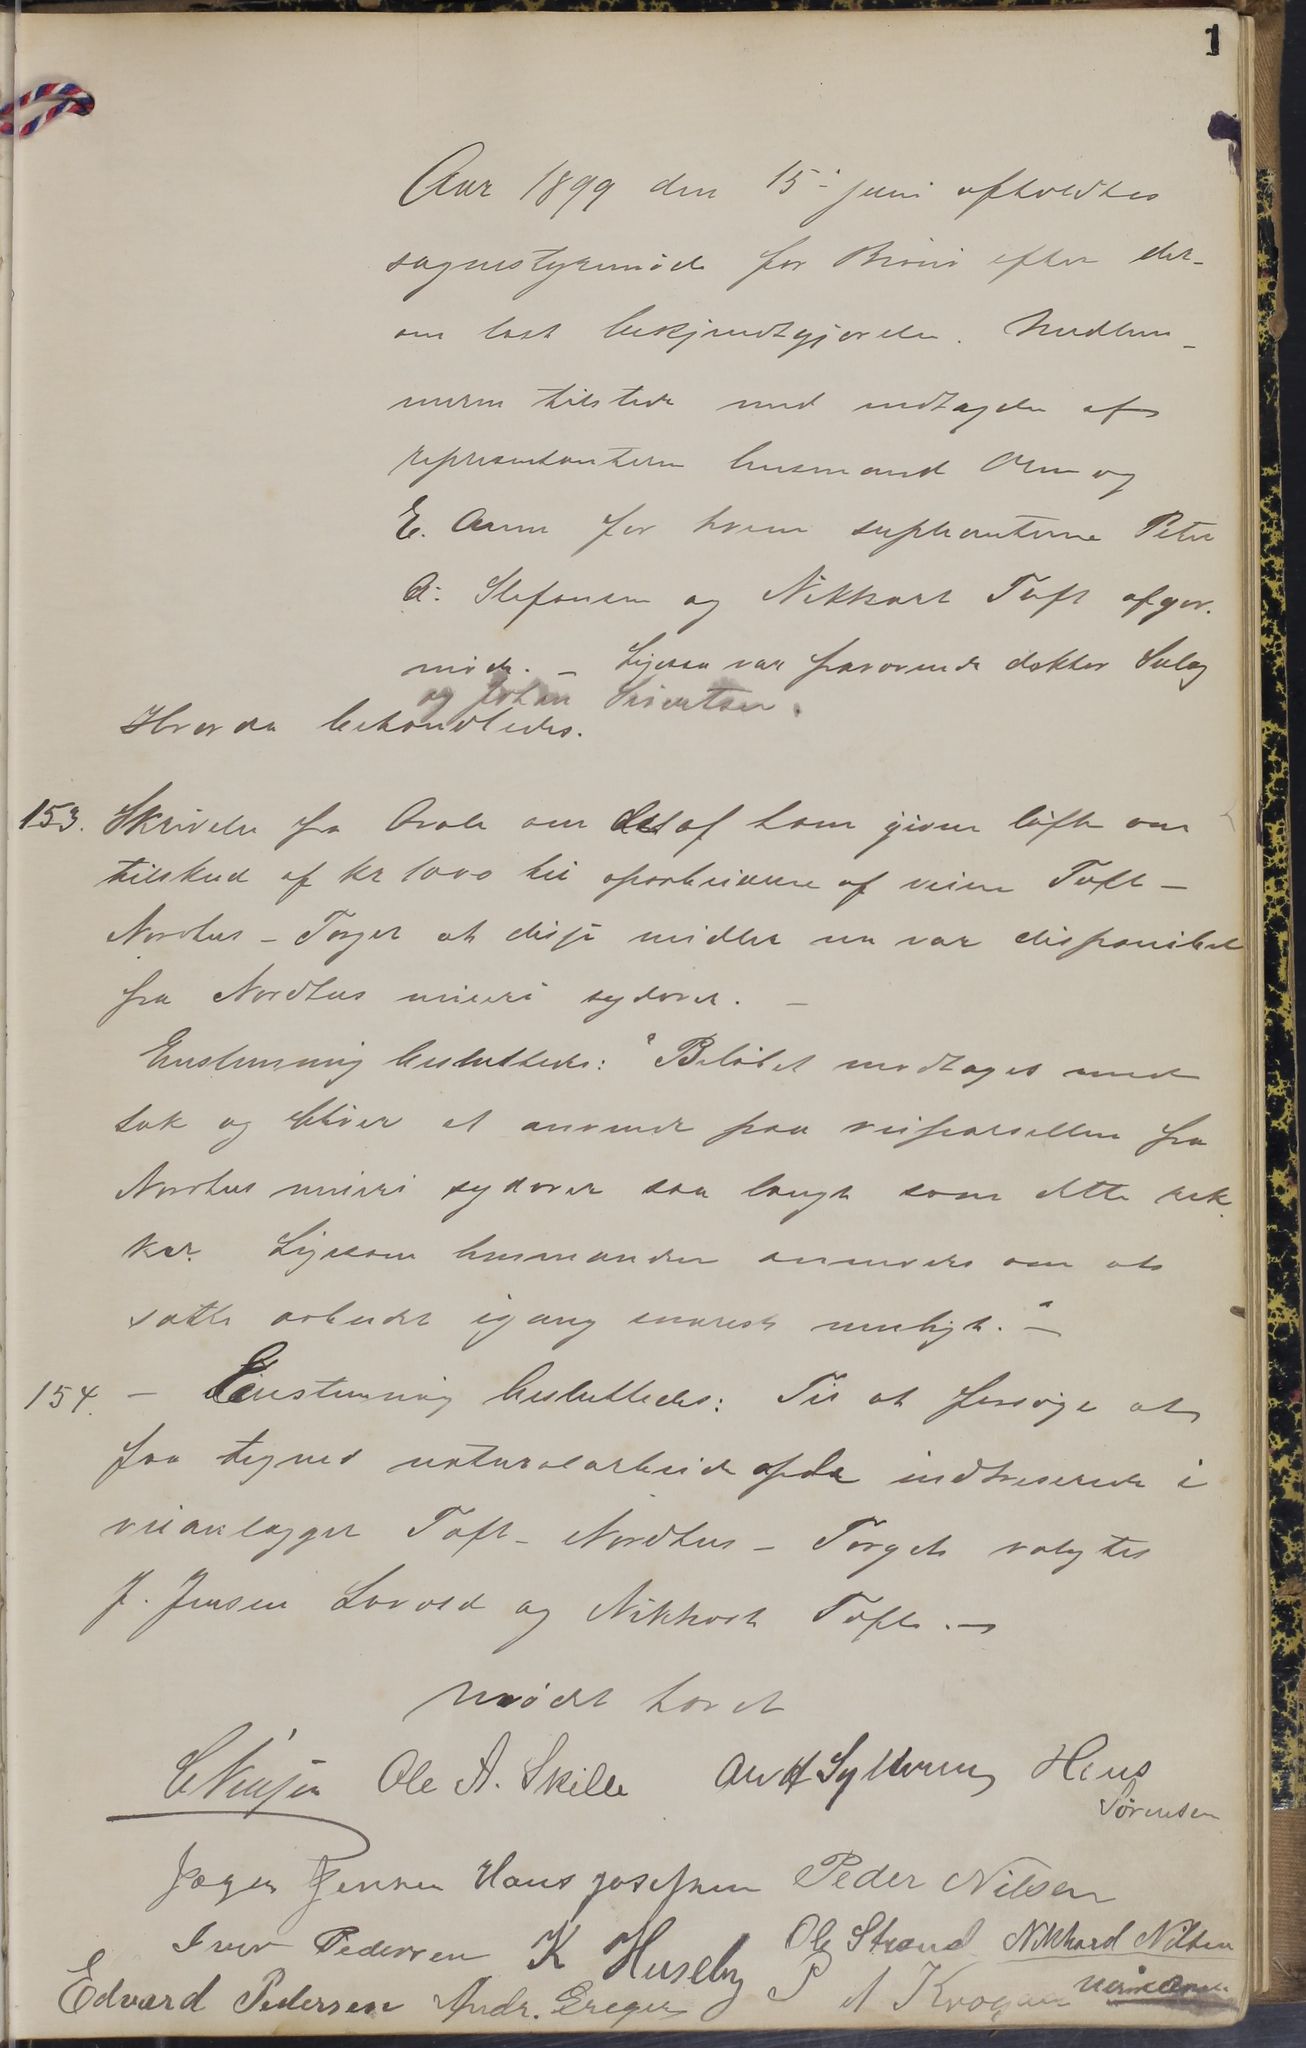 1
Aar 1899 den 15 juni afholdtes
sognestyremøde for Brønø efter der-
om løst bekjendtgjørelse. Medlem-
merne tilstede med undtagelse af
repræsentanterne husmand Orm og
E. Aune for hvem suplianterne Peter
A. Stefansen og Nikhart Toft afgav
møde. – Ligesaa var fraværende doktor
og Johan Sivertsen.
Hvorda behandledes.
153. Skrivelse fra om det af ham givne løfte om
tilskud af kr 1000 til oparbeidelse af veien Toft –
Nordhus – Torget at disse midler nu var disponibel
fra Nordhus sydover. –
Enstemmig besluttedes: "Beløbet modtages med
tak og bliver at anvende paa veiparsellen fra
Nordhus sydover saa langt som dette ræk-
ker. Ligesom anmodes om at
sætte arbeidet igang snarest muligt." –
154. – Enstemmig besluttedes: Til at forsøge at
faa tegned naturalarbeide af de indtreserede i
veianlægget Toft – Nordhus – Torget valgtes
J. Jensen Lorvold og Nikhart Toft. –
Mødet hævet
Ole A. Skille Hans
Sørensen
Jensen Hans Josefsen Peder Nilsen
Iver Pedersen K Huseby Ole Strand Nikhard Nilsen
Edvard Pedersen Andr. Greger P A Krogan